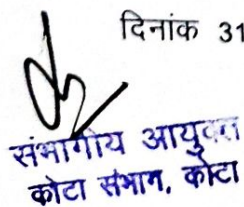 दिनांक 31
संभागीय आयुक्त
कोटा संभाग, कोटा